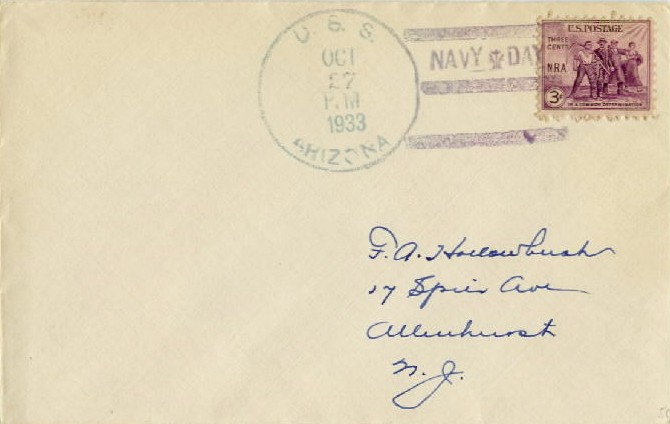 U. S. S.
OCT
27
P.M
1933
ARIZONA
NAVY DAY
U.S. POSTAGE
THREE
CENTS
NRA
3¢
IN A COMMON DETERMINATION
F. A. Hollowbush
17 Spier Ave
Allenhurst
N. J.